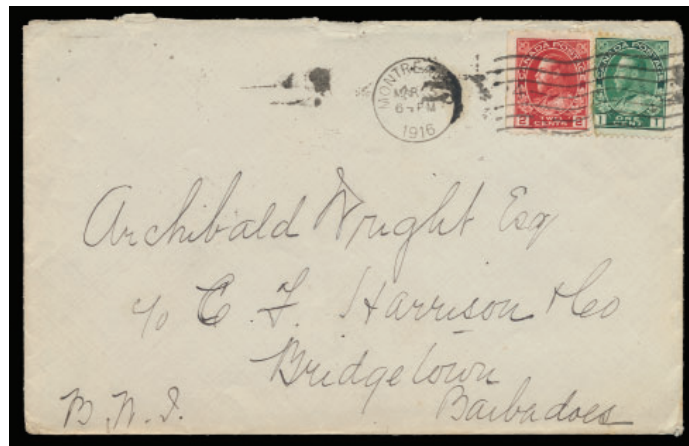 MONTREAL
MAR
6 - PM
1916
CANADA POSTAGE
2 TWO CENTS 2
CANADA POSTAGE
1 ONE CENT 1
Archibald Wright Esq
c/o C. F. Harrison & Co
Bridgetown
B.W.I. Barbadoes